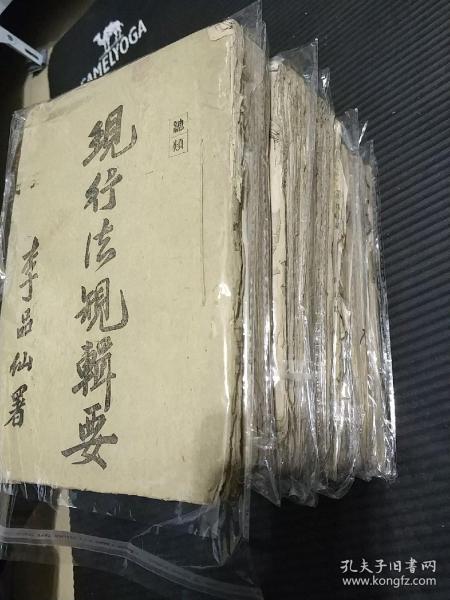 CAMELYOGA
總類
現行法規輯要
李品仙署
孔夫子旧书网
www.kongfz.com